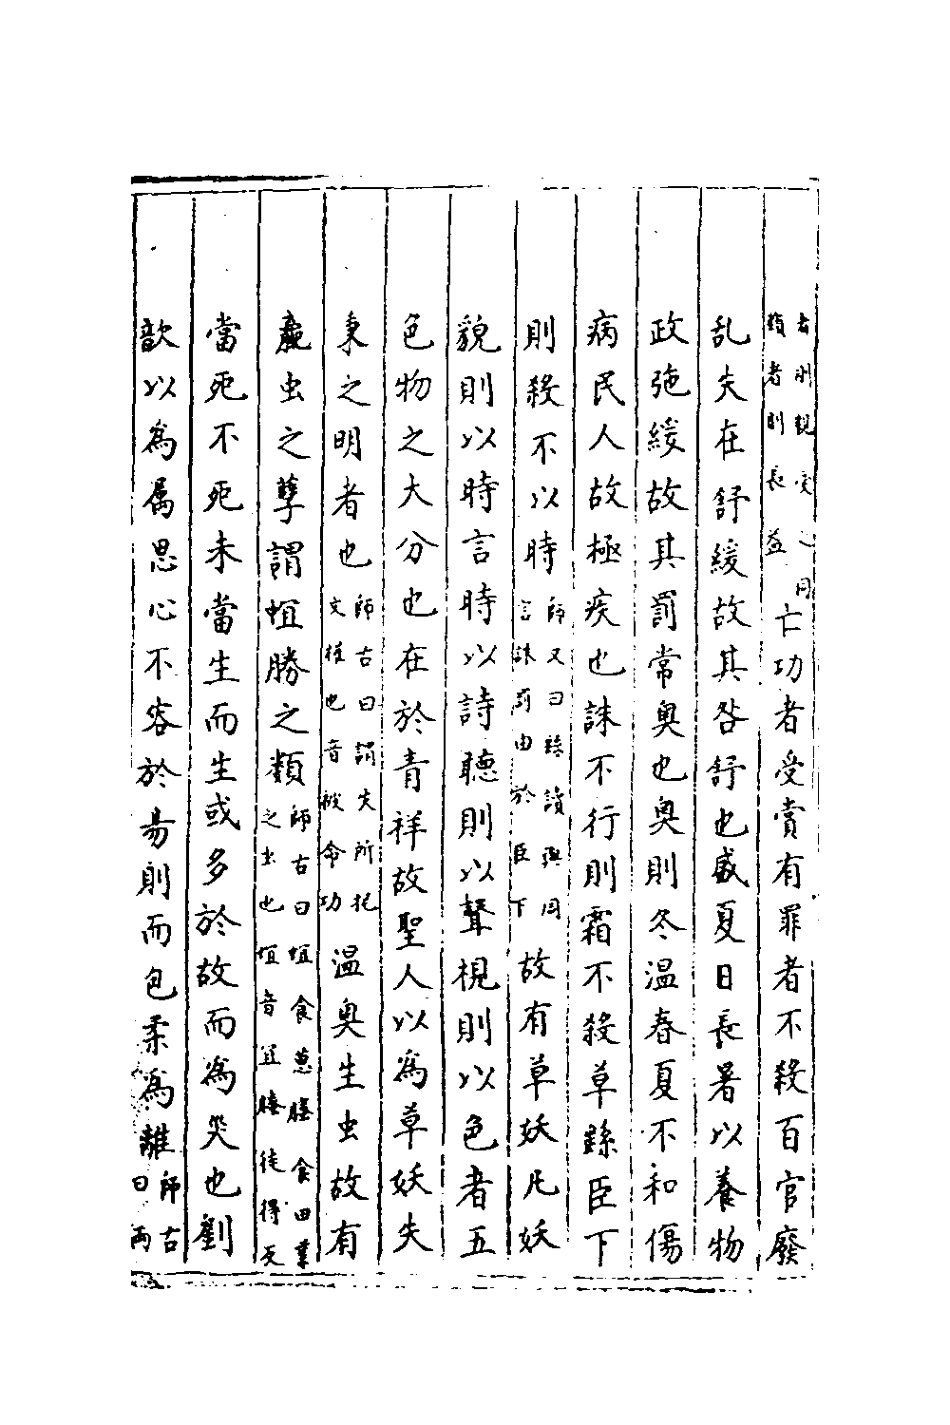 者則親受之同類者則長益亡功者受賞有罪者不殺百官廢
乱失在舒緩故其咎舒也盛夏日長暑以養物
政弛緩故其罰常奥也奥則冬温春夏不和傷
病民人故極疾也誅不行則霜不殺草繇臣下
則殺不以時師又曰繇讀與同言誅罰由於臣下故有草妖凡妖
貌則以時言時以詩聽則以聲視則以色者五
色物之大分也在於青祥故聖人以為草妖失
秉之明者也師古曰謂失所托文柄也音被命功温奥生虫故有
蠃虫之孽謂蝗螣之類師古曰蝗食葱螣食田業之虫也蝗音冝螣徒得反
當死不死未當生而生或多於故而為灾也劉
歆以為属思心不容於昜則而包柔為離師古曰两